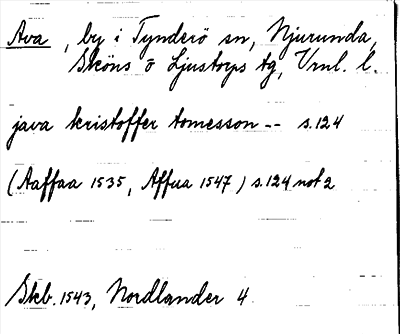 Ava, by i Tynderö sn, Njurunda,
Sköns o Ljustorps tg, Vrnl. l.
java kristoffer tomesson -- s.124
(Aaffaa 1535, Affua 1547) s.124 not 2
Skb. 1543, Nordlander 4